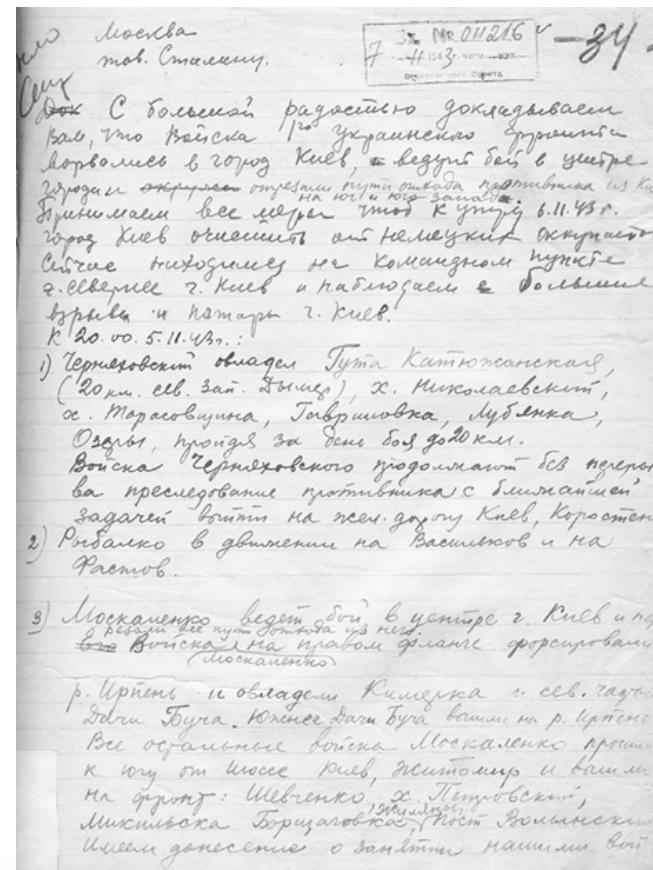 Москва
тов. Сталину.
Вх. № 011216
7 11 1943 г.
-34
С большой радостью докладываем
Вам, что Войска 1го Украинского фронта
ворвались в город Киев, ведут бой в центре
города и отрезали пути отхода противника из
на юг и юго запад.
Принимаем все меры чтоб к утру 6.11.43 г.
город Киев очистить от немецких
Сейчас находимся на командном пункте
севернее г. Киев и наблюдаем большие
взрывы и пожары г. Киев.
К 20.00. 5.11.43г.:
1) Черняховский овладел Гута Катюжанская,
(20 км. сев. зап. Дымер), х. Николаевский,
х. Тарасовщина, Гавриловка, Лубянка,
Озеры, пройдя за день боя до 20 км.
Войска Черняховского продолжают без переры
ва преследование противника с ближайшей
задачей выйти на жел. дорогу Киев, Коростен
2) Рыбалко в движении на Васильков и на
Фастов.
3) Москаленко ведет бой в центре г. Киев и
резали все пути отхода из него
Войска на правом фланге форсировали
(Москаленко)
р. Ирпень и овладели и сев.
Дачи Буча. Южнее Дачи Буча вышли на р. Ирпень
Все остальные войска Москаленко прошли
к югу от шоссе Киев, Житомир и вышли
на фронт: Шевченко, х. Петровский,
Жуляны,
Микильска Борщаговка, Пост Волынский
Имеем донесение о занятии нашими вой